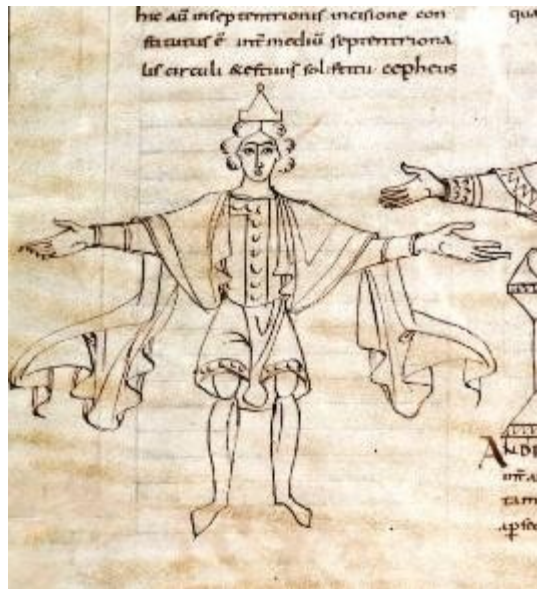 hic aū inseptentrionis incisione con
stitutus ē int̄ mediū septentriona
lis circuli & estivis solstitii cepheus
qua
ANDR
int̄ a
tam